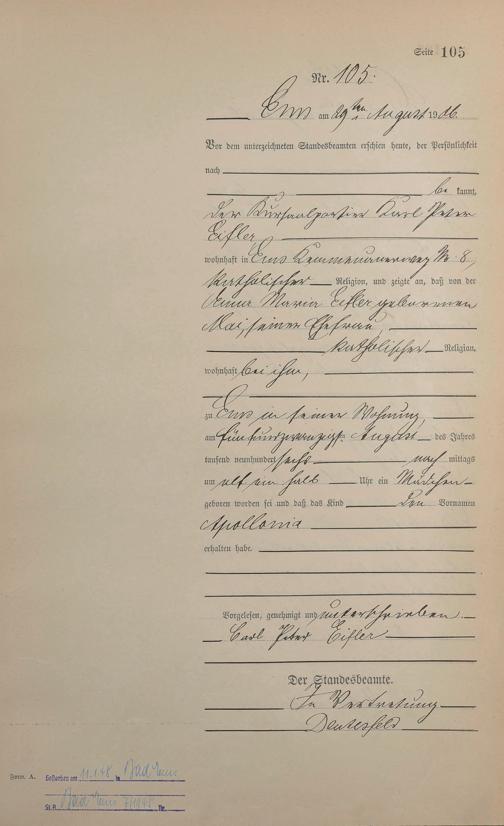 Seite 105
Nr. 105.
Ems am 29ten August 1906.
Vor dem unterzeichneten Standesbeamten erschien heute, der Persönlichkeit
nach
be kannt,
der Kursaalportier Karl Peter
Eifler
wohnhaft in Ems Kemmenauerweg No 8,
katholischer Religion, und zeigte an, daß von der
Anna Maria Eifler geborenen
Mai, seiner Ehefrau,
katholischer Religion,
wohnhaft bei ihm,
zu Ems in seiner Wohnung
am fünfundzwanzigsten August des Jahres
tausend neunhundert sechs nach mittags
um elf ein halb Uhr ein Mädchen
geboren worden sei und daß das Kind den Vornamen
Apollonia
erhalten habe.
Vorgelesen, genehmigt und unterschrieben
Carl Peter Eifler
Der Standesbeamte.
In Vertretung
Form. A. Gestorben am 11.1.48 in Bad Ems
St.A. Bad Ems Nr.